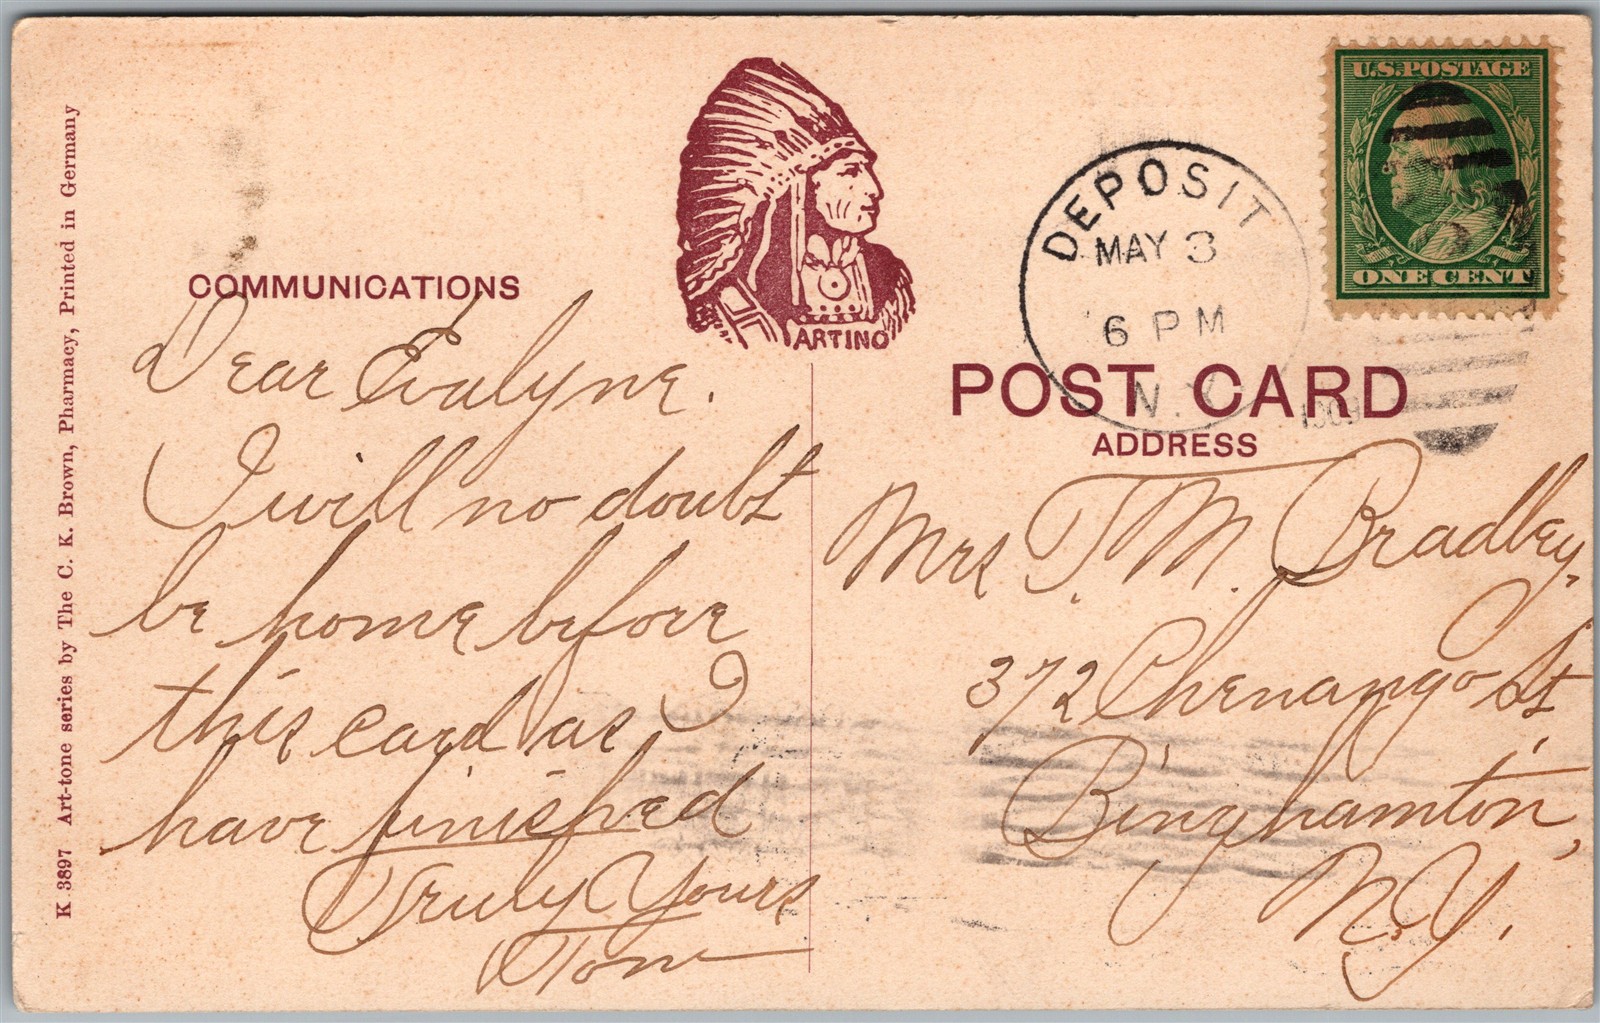 U.S. POSTAGE
ONE CENT
DEPOSIT
MAY 3
6 PM
N.Y.
ARTINO
COMMUNICATIONS
POST CARD
ADDRESS
Dear Evalyne.
I will no doubt
be home before
this card as I
have finished
Truly Yours
Tom
Mrs T. M. Bradley,
372 Chenango St,
Binghamton,
N.Y.
K 3897 Art-tone series by The C. K. Brown, Pharmacy, Printed in Germany